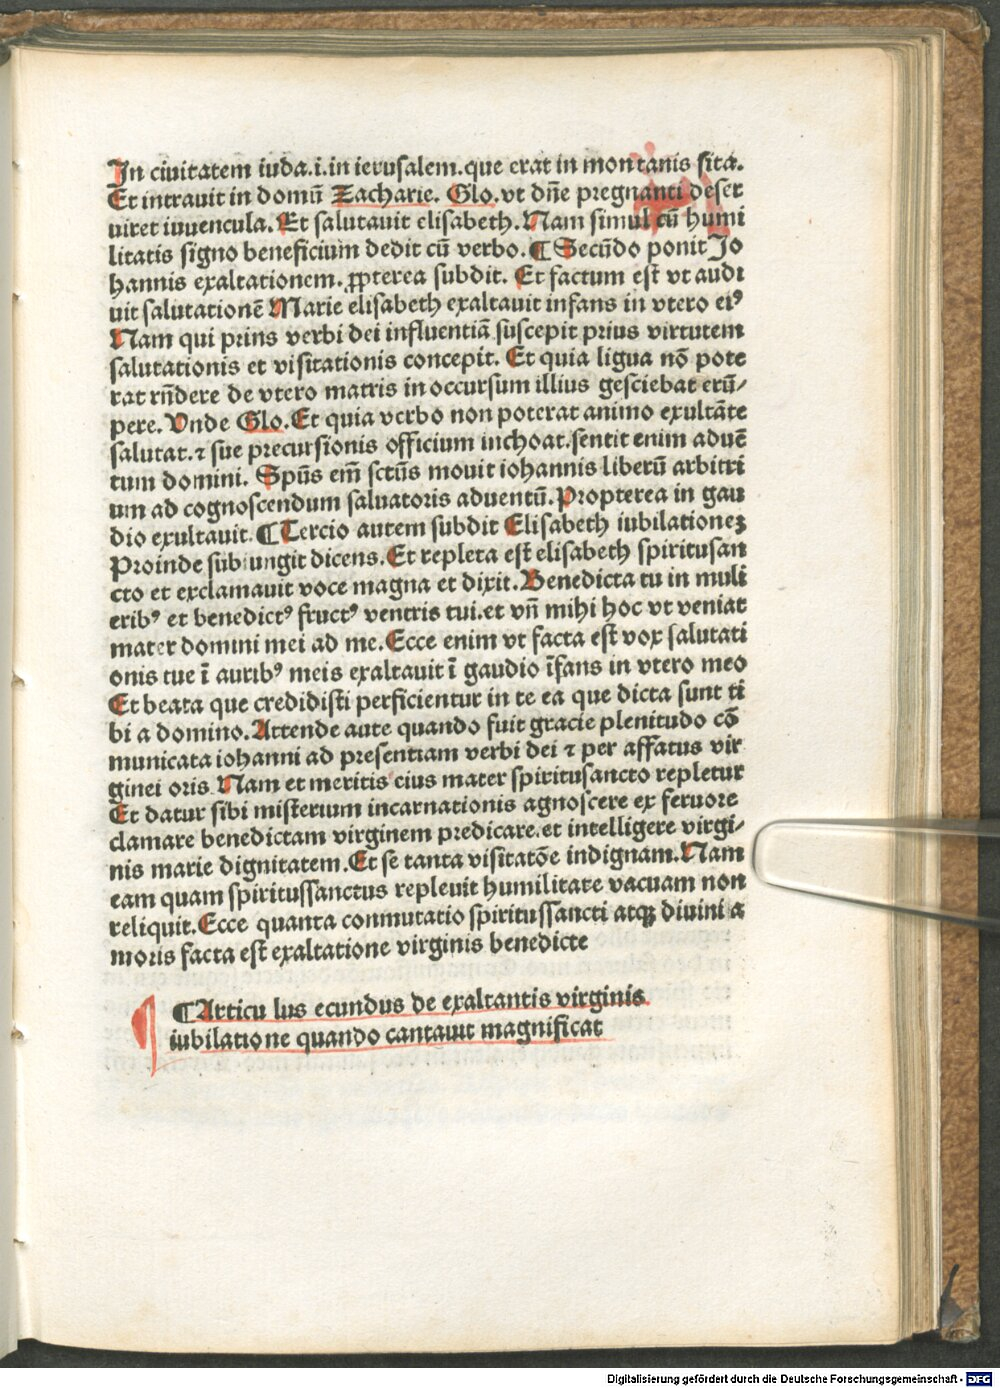 In ciuitatem iuda.i.in ierusalem.que erat in montanis sita.
Et intrauit in domū Zacharie. Glo.vt dn̄e pregnanti deser
uiret iuuencula. Et salutauit elisabeth. Nam simul cū humi
litatis signo beneficium dedit cū verbo. ¶ Secūdo ponit Jo
hannis exaltationem. ꝓpterea subdit. Et factum est vt audi
uit salutationē Marie elisabeth exaltauit infans in vtero eiꝰ
Nam qui prins verbi dei influentiā suscepit prius virtutem
salutationis et visitationis concepit. Et quia ligua nō pote
rat rn̄dere de vtero matris in occursum illius gesciebat erū/
pere. Vnde Glo. Et quia verbo non poterat animo exultāte
salutat. ⁊ sue precursionis officium inchoat. sentit enim aduē
tum domini. Spūs em̄ sctūs mouit iohannis liberū arbitri
um ad cognoscendum saluatoris aduentū. Propterea in gau
dio exultauit. ¶ Tercio autem subdit Elisabeth iubilationeꝫ
Proinde subiungit dicens. Et repleta est elisabeth spiritusan
cto et exclamauit voce magna et dixit. Benedicta tu in muli
eribꝰ et benedictꝰ fructꝰ ventris tui. et vn̄ mihi hoc vt veniat
mater domini mei ad me. Ecce enim vt facta est vox salutati
onis tue ī auribꝰ meis exaltauit ī gaudio īfans in vtero meo
Et beata que credidisti perficientur in te ea que dicta sunt ti
bi a domino. Attende aute quando fuit gracie plenitudo cō
municata iohanni ad presentiam verbi dei ⁊ per affatus vir
ginei oris. Nam et meritis eius mater spiritusancto repletur
Et datur sibi misterium incarnationis agnoscere ex feruore
clamare benedictam virginem predicare. et intelligere virgi/
nis marie dignitatem. Et se tanta visitatōe indignam. Nam
eam quam spiritussanctus repleuit humilitate vacuam non
reliquit. Ecce quanta conmutatio spiritussancti atqꝫ diuini a
moris facta est exaltatione virginis benedicte
¶ Articu lus ecundus de exaltantis virginis
iubilatione quando cantauit magnificat
Digitalisierung gefördert durch die Deutsche Forschungsgemeinschaft - DFG